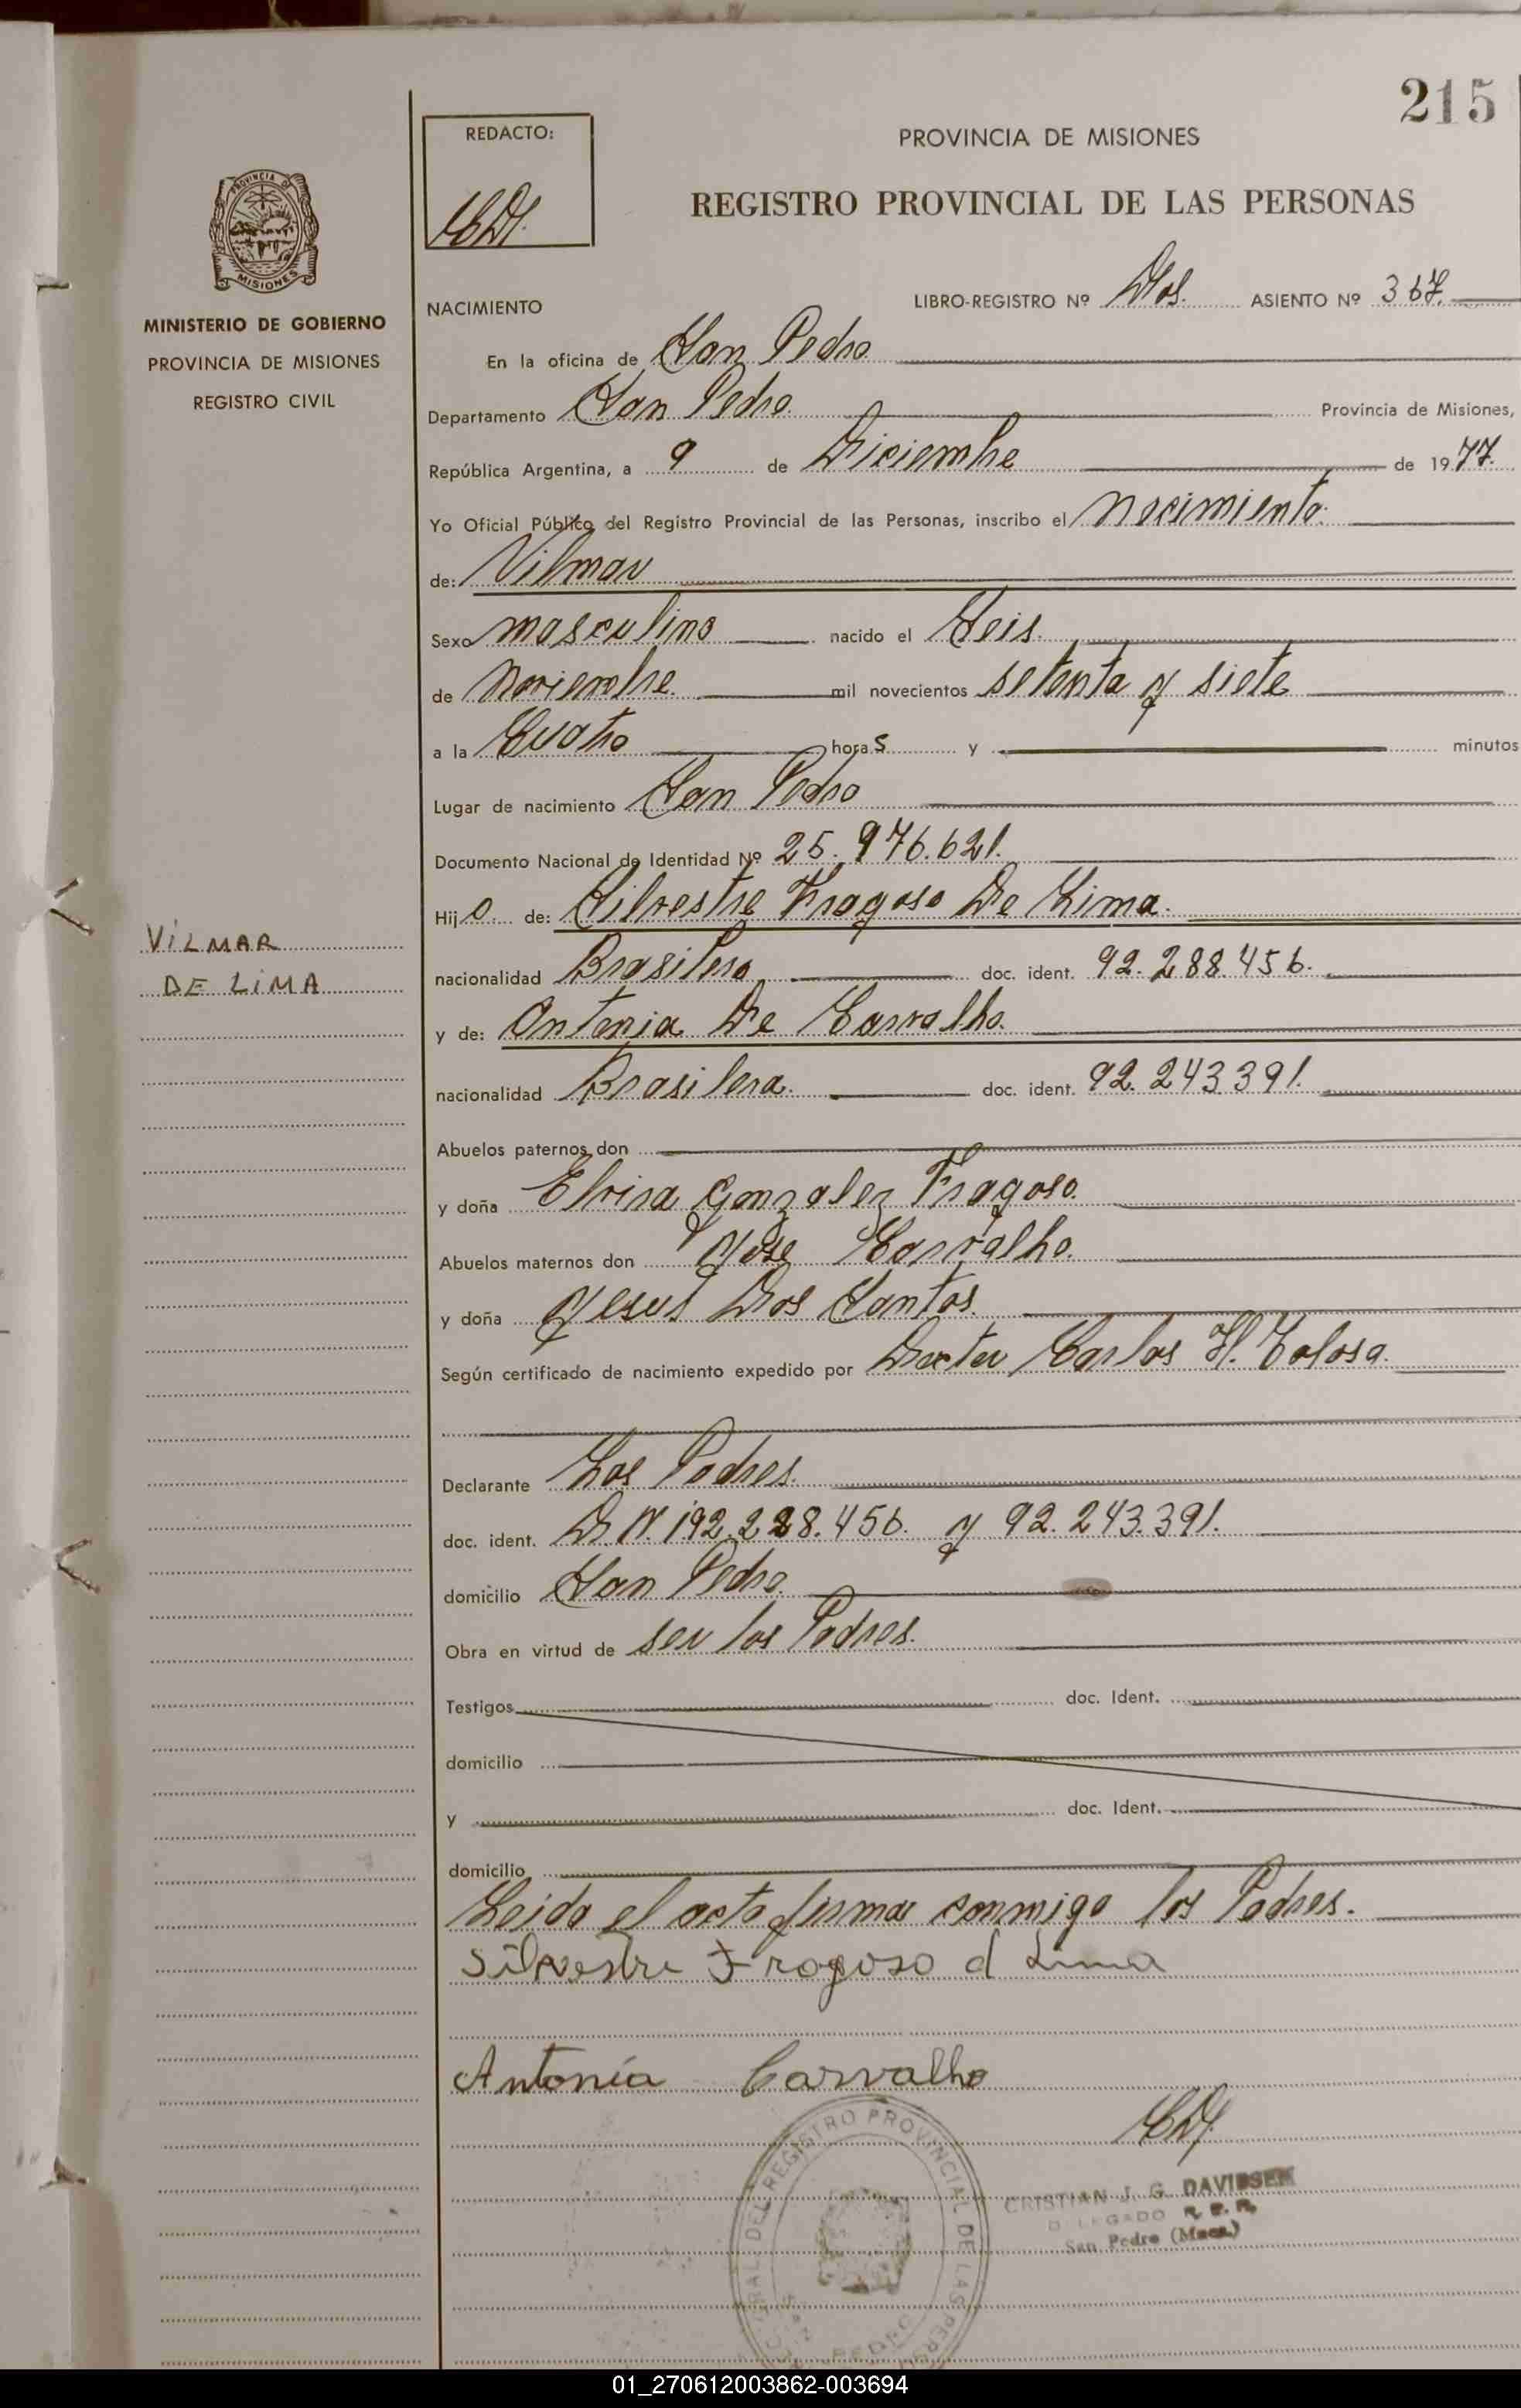 215
REDACTO:
PROVINCIA DE MISIONES
REGISTRO PROVINCIAL DE LAS PERSONAS
PROVINCIA DE
MISIONES
MINISTERIO DE GOBIERNO
PROVINCIA DE MISIONES
REGISTRO CIVIL
NACIMIENTO
LIBRO-REGISTRO Nº Dos. ASIENTO Nº 367.
En la oficina de San Pedro
Departamento San Pedro. Provincia de Misiones,
República Argentina, a 9 de Diciembre de 1977.
Yo Oficial Público del Registro Provincial de las Personas, inscribo el nacimiento.
de: Vilmar
Sexo masculino nacido el Seis.
de Noviembre. mil novecientos setenta y siete
a la Cuatro horas y minutos
Lugar de nacimiento San Pedro
Documento Nacional de Identidad Nº 25.976.621.
Hijo de: Silvestre Fragoso De Lima.
VILMAR
DE LIMA
nacionalidad Brasilero doc. ident. 92.288.456.
y de: Antonia De Carvalho.
nacionalidad Brasilera. doc. ident. 92.243.391.
Abuelos paternos don
y doña Elvira Gonzalez Fragoso.
Abuelos maternos don Jose Carvalho.
y doña Jesus Dos Santos.
Según certificado de nacimiento expedido por Doctor Carlos H. Tolosa.
Declarante Los Padres.
doc. ident. D.N.I 92.228.456. y 92.243.391.
domicilio San Pedro.
Obra en virtud de ser los Padres.
Testigos doc. Ident.
domicilio
y doc. Ident.
domicilio
Leida el acta firma conmigo los Padres.
Silvestre Fragoso d Lima
Antonía Carvalho
DEL REGISTRO PROVINCIAL DE LAS
CRISTIAN J. G. DAVIDSEN
DELEGADO R. P. P.
San Pedro (Mnes.)
01_270612003862-003694